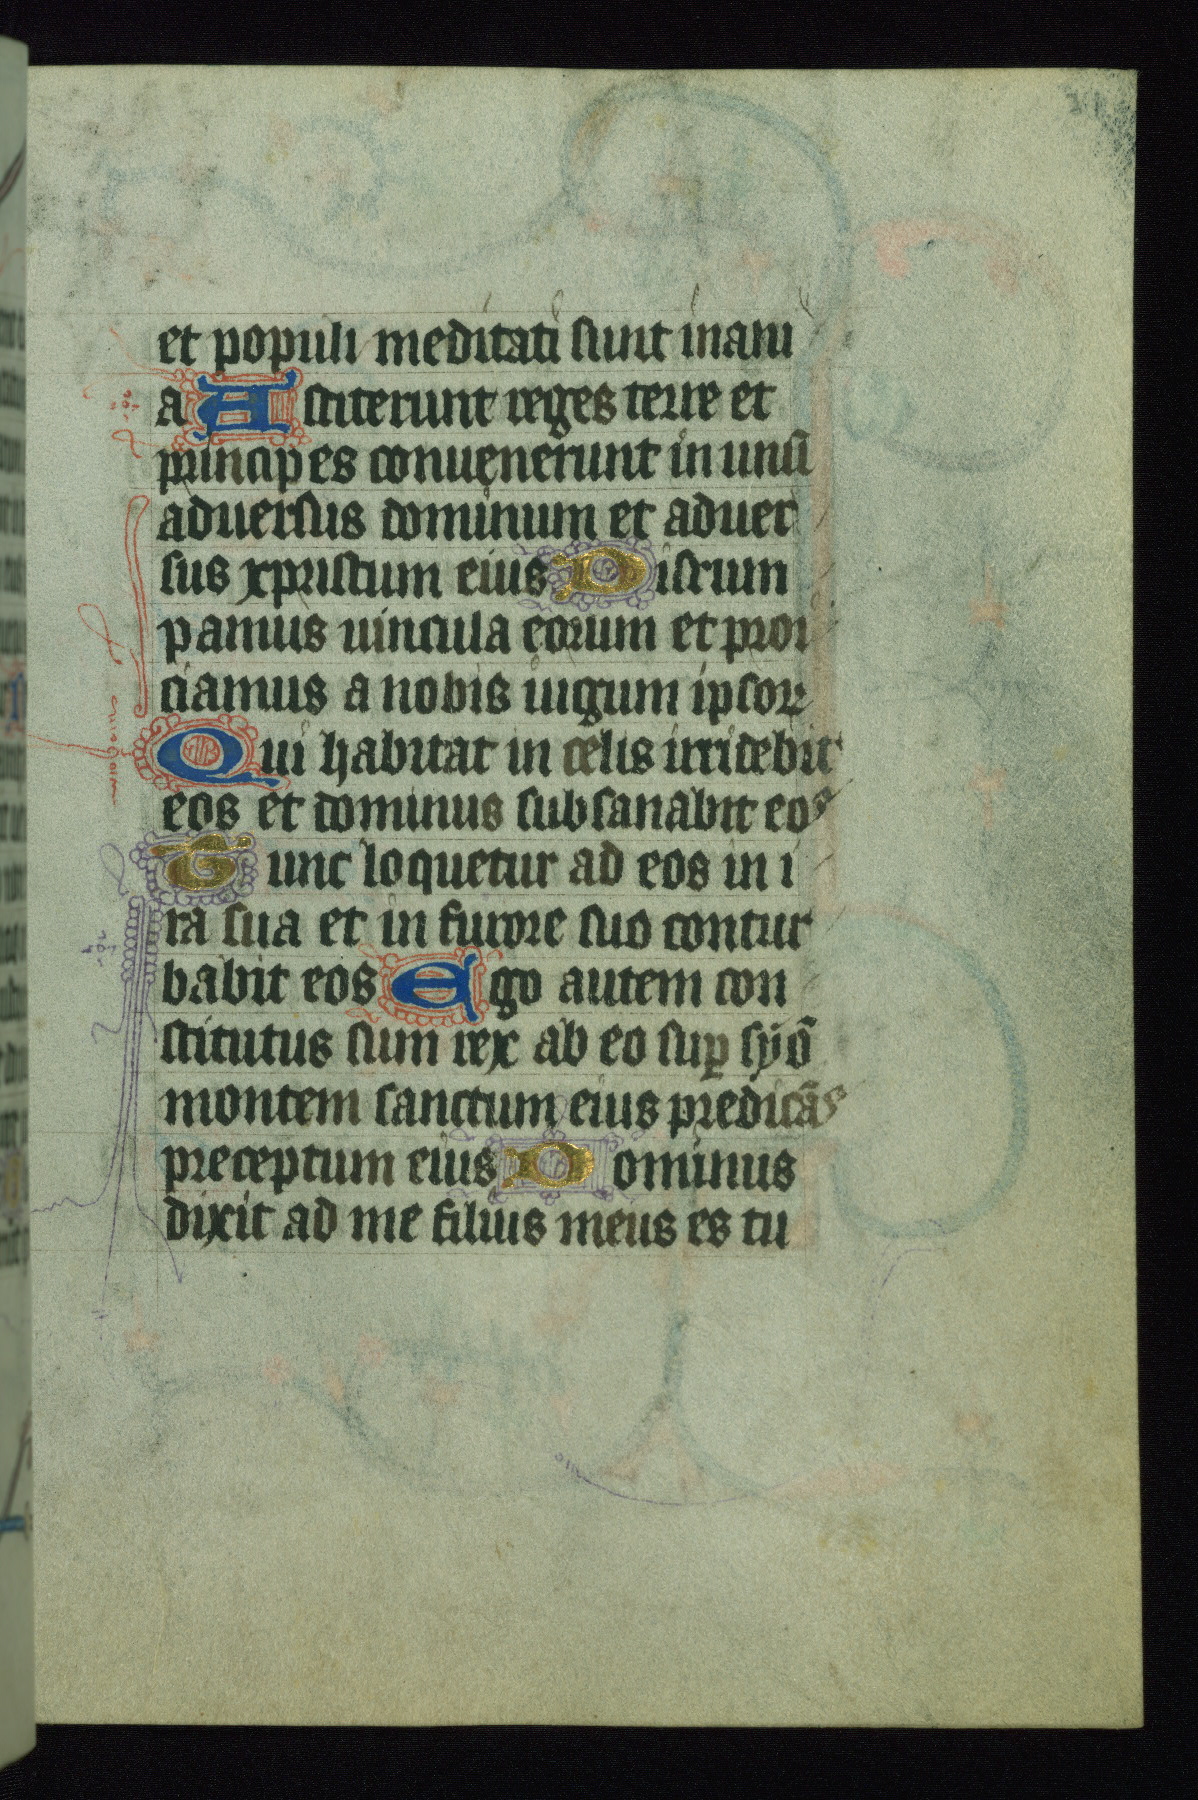 et populi meditati sunt inani
a Astiterunt reges terre et
principes conuenerunt in unũ
aduersus dominum et aduer
sus xpristum eius Disrum
pamus uincula eorum et proi
ciamus a nobis iugum ipsoꝝ
Qui habitat in celis irridebit
eos et dominus subsanabit eos
Tunc loquetur ad eos in i
ra sua et in furore suo contur
babit eos Ego autem con
stitutus sum rex ab eo suꝑ syõ
montem sanctum eius predicãs
preceptum eius Dominus
dixit ad me filius meus es tu